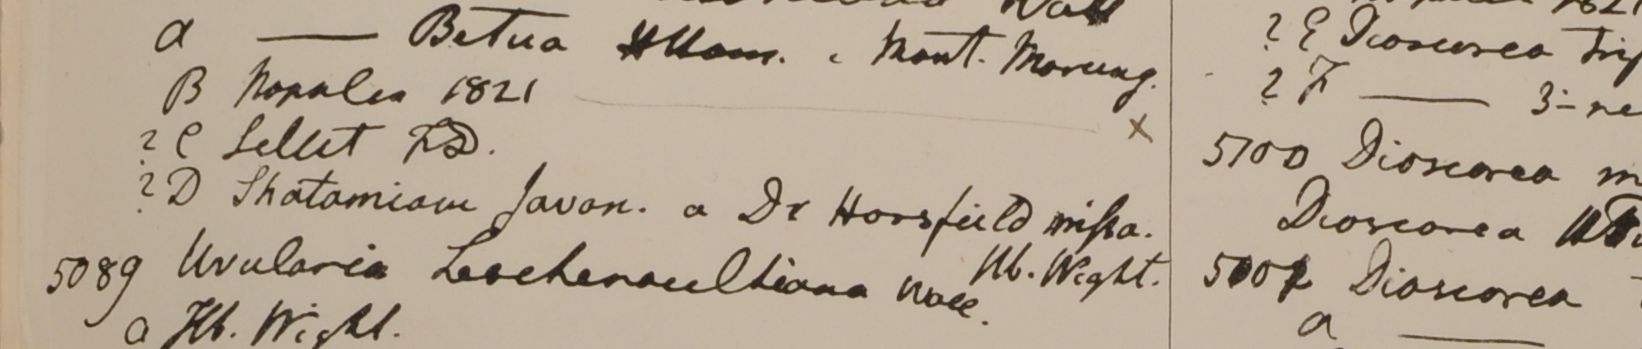 Wall
a —— Betua HHam. e Mont. Morung.
B Napalea 1821
? C Sellet F.D.
? D Shatamiam Javan. a Dr Horsfield missa.
5089 Uvularia Leschenaultiana Wall. Hb. Wight.
a Hb. Wight.
? E Dioscorea Trip
? F —— 3-ne
5100 Dioscorea m
Dioscorea
Dioscorea
a ——